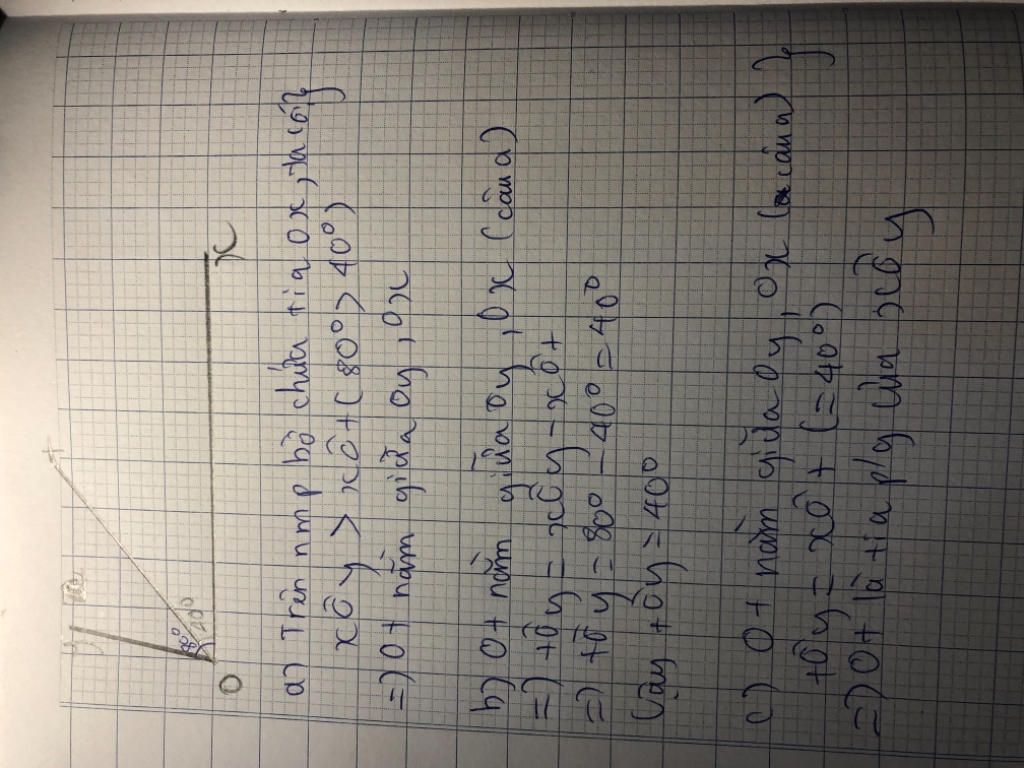 y
t
80°
40°
O
x
a) Trên nmp bờ chứa tia Ox, ta có }
xôy > xôt (80° > 40°)
=) Ot nằm giữa Oy, Ox
b) Ot nằm giữa Oy, Ox (câu a)
=) tôy = xôy - xôt
=) tôy = 80° - 40° = 40°
Vậy tôy = 40°
c) Ot nằm giữa Oy, Ox (câu a) }
tôy = xôt (= 40°)
=) Ot là tia p/g của xôy